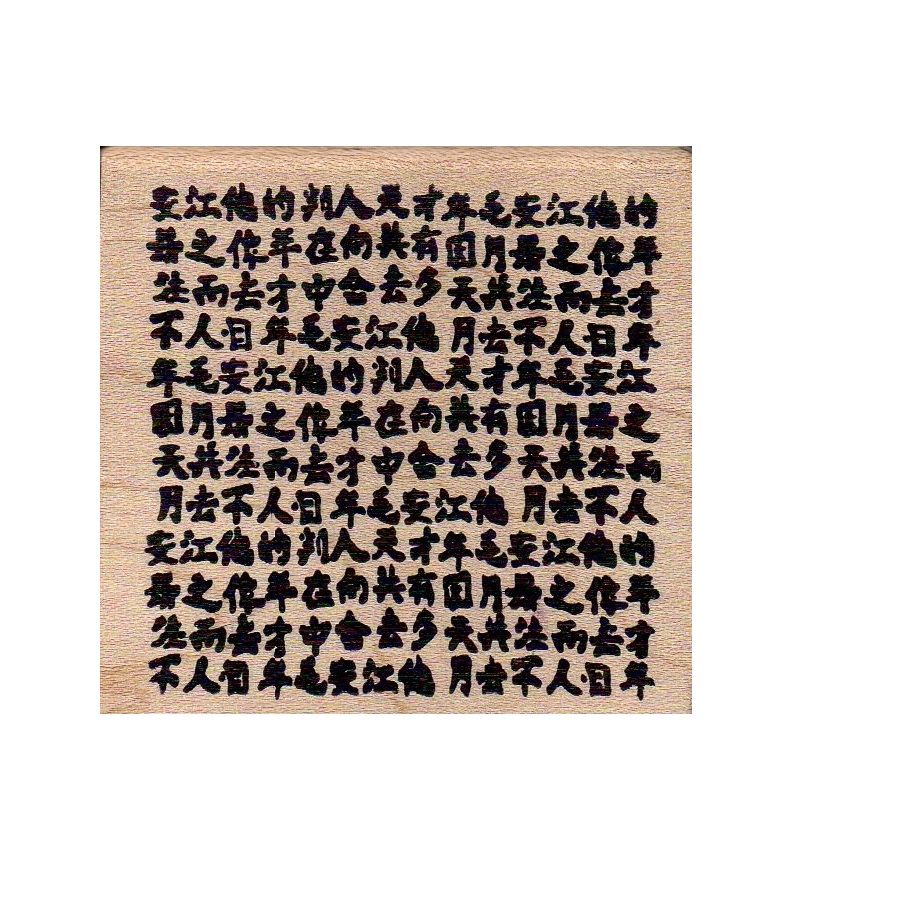 安江他的判人天才年毛安江他的
最之像年在向共有国月最之像年
法而去才中合去多天共法而去才
不人日年毛安江他月去不人日年
年毛安江他的判人天才年毛安江
国月最之像年在向共有国月最之
天共法而去才中合去多天共法而
月去不人日年毛安江他月去不人
安江他的判人天才年毛安江他的
最之像年在向共有国月最之像年
法而去才中合去多天共法而去才
不人日年毛安江他月去不人日年